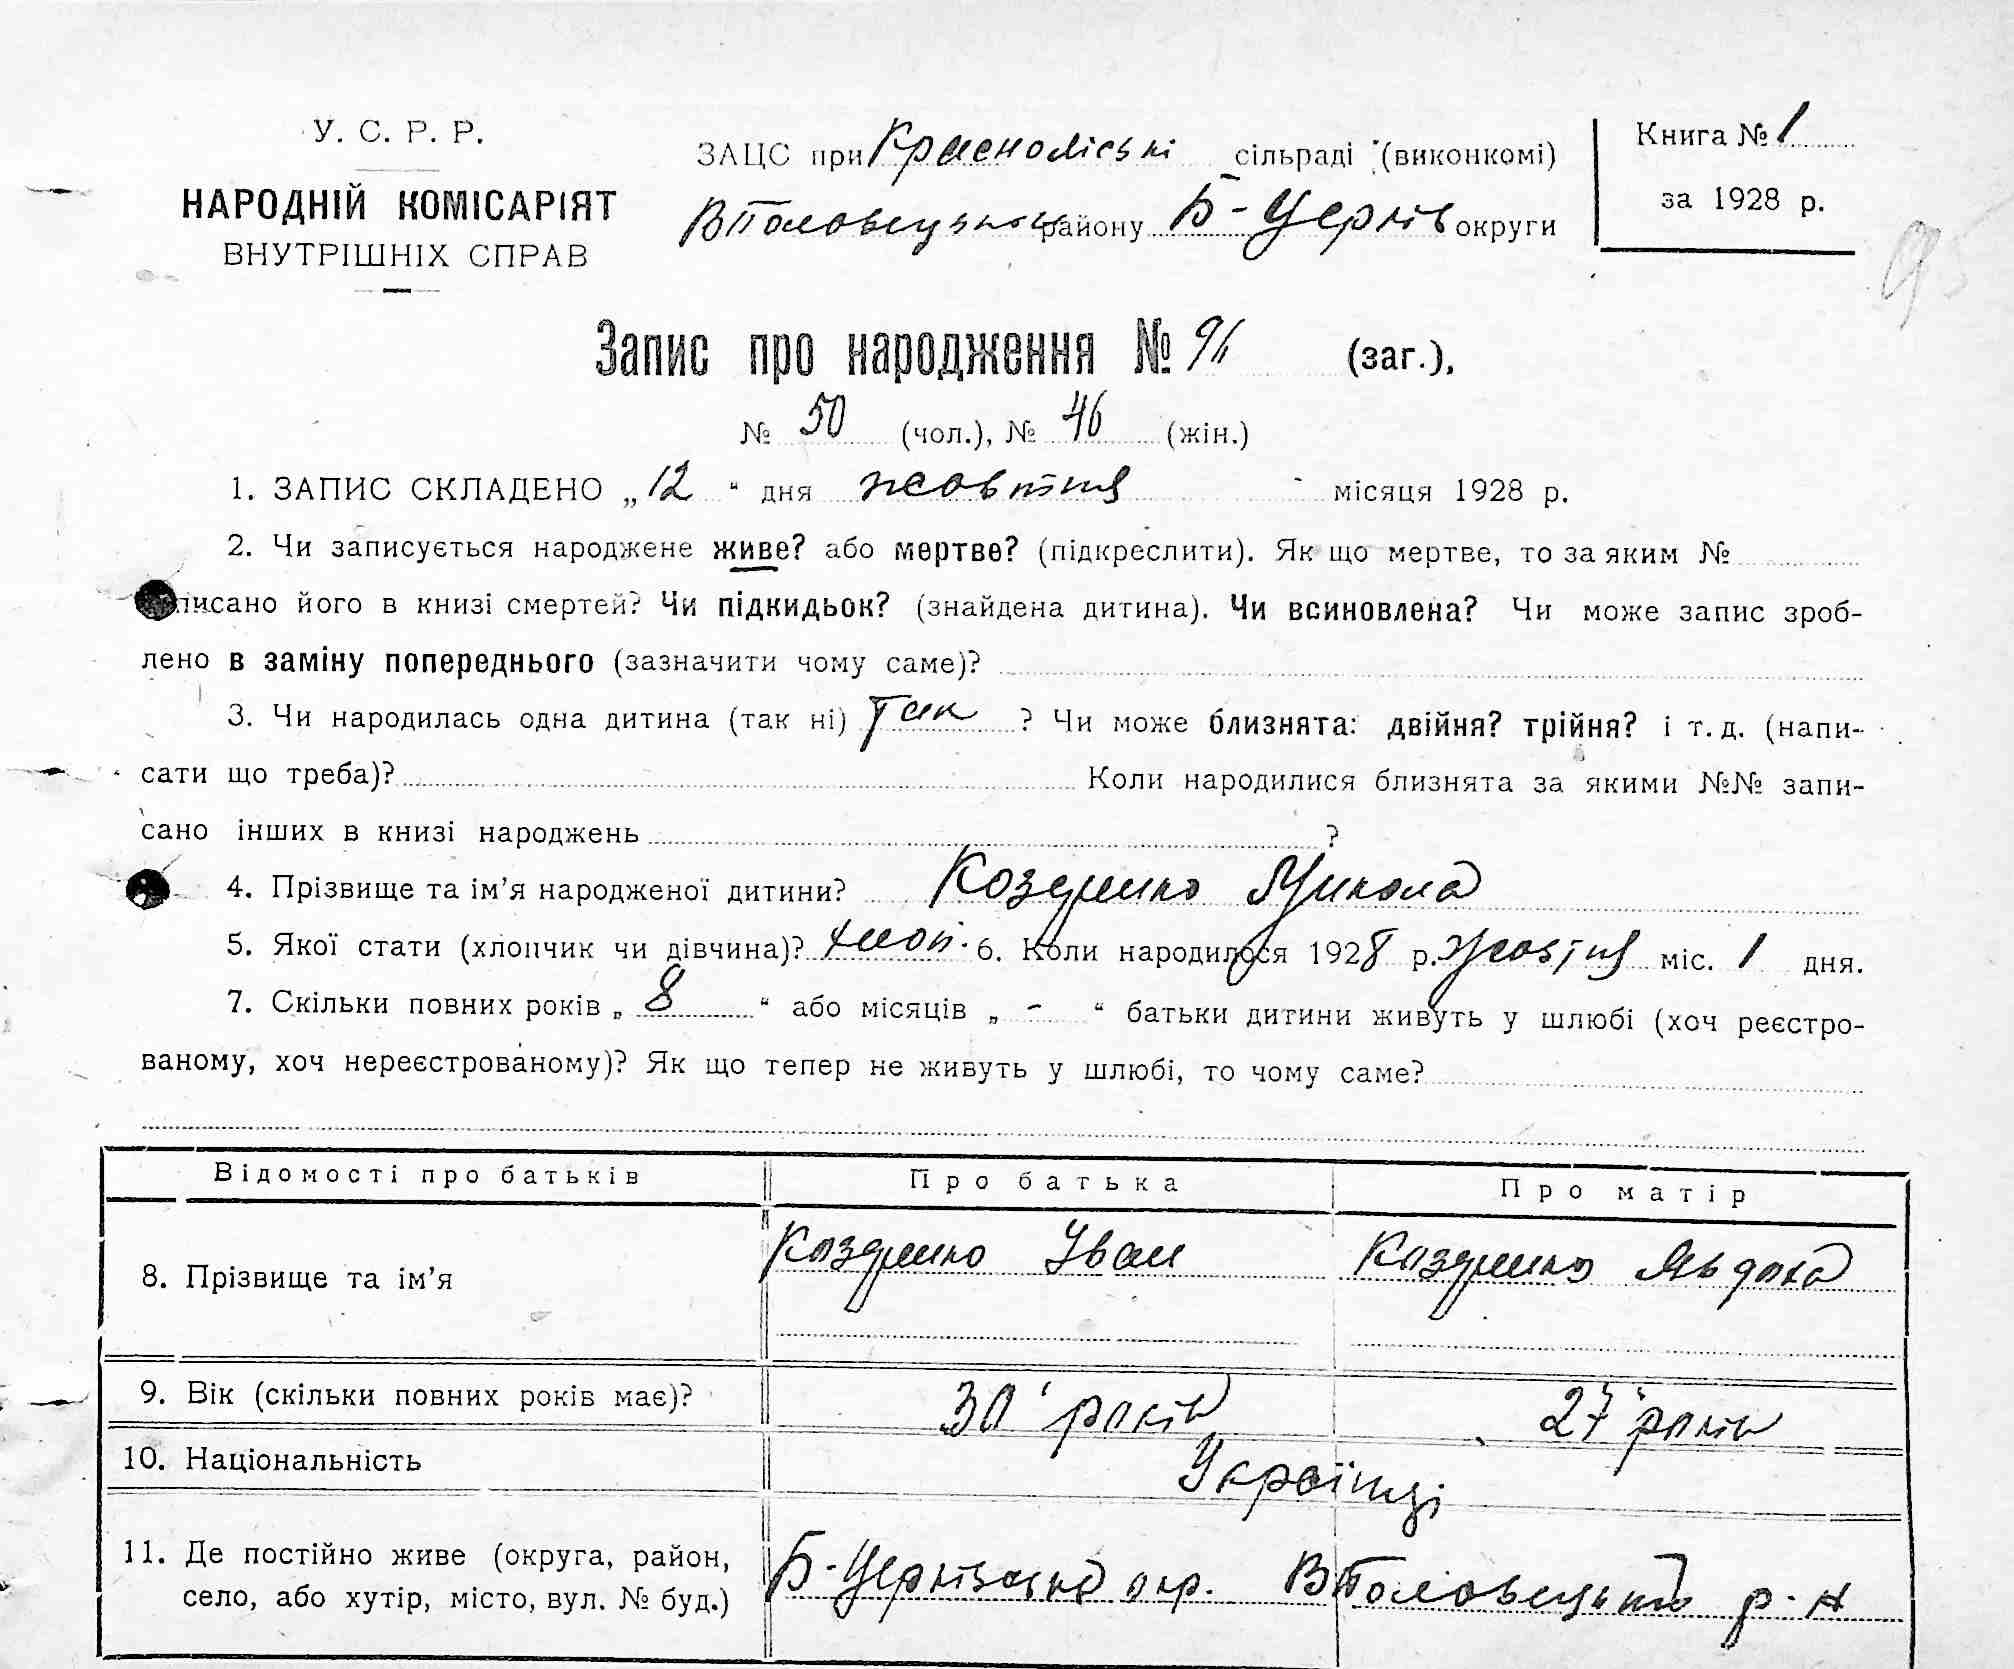 У. С. Р. Р.
НАРОДНІЙ КОМІСАРІЯТ
ВНУТРІШНІХ СПРАВ
ЗАЦС при Красноліські сільраді (виконкомі)
ВПоловецького району Б-Церків округи
Книга № 1
за 1928 р.
Запис про народження № 96 (заг.),
№ 50 (чол.), № 46 (жін.)
1. ЗАПИС СКЛАДЕНО „12“ дня жовтня місяця 1928 р.
2. Чи записується народжене живе? або мертве? (підкреслити). Як що мертве, то за яким №
писано його в книзі смертей? Чи підкидьок? (знайдена дитина). Чи всиновлена? Чи може запис зроб-
лено в заміну попереднього (зазначити чому саме)?
3. Чи народилась одна дитина (так ні) Так ? Чи може близнята: двійня? трійня? і т. д. (напи-
сати що треба)? Коли народилися близнята за якими №№ запи-
сано інших в книзі народжень ?
4. Прізвище та ім’я народженої дитини? Микола
5. Якої стати (хлопчик чи дівчина)? хлоп. 6. Коли народилося 1928 р. жовтня міс. 1 дня.
7. Скільки повних років „ 8 “ або місяців „ - “ батьки дитини живуть у шлюбі (хоч реєстро-
ваному, хоч нереєстрованому)? Як що тепер не живуть у шлюбі, то чому саме?
Відомості про батьків Про батька Про матір
8. Прізвище та ім’я Іван Явдоха
9. Вік (скільки повних років має)? 30 років 27 років
10. Національність Українці
11. Де постійно живе (округа, район,
село, або хутір, місто, вул. № буд.)
Б-Церківська окр. ВПоловецького р-н